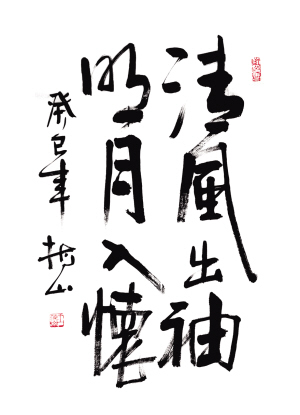 清風出袖
明月入懷
癸巳年